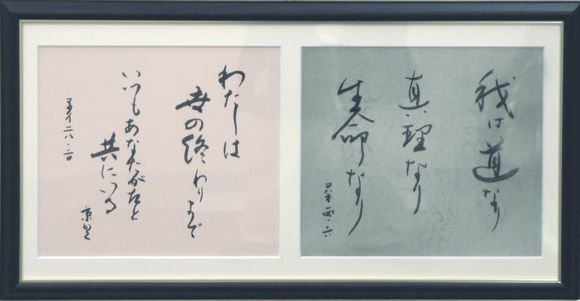 我は道なり
真理なり
生命なり
ヨハネ 一四・六
わたしは
世の終わりまで
いつもあなたがたと
共にいる
マタイ二八・二〇